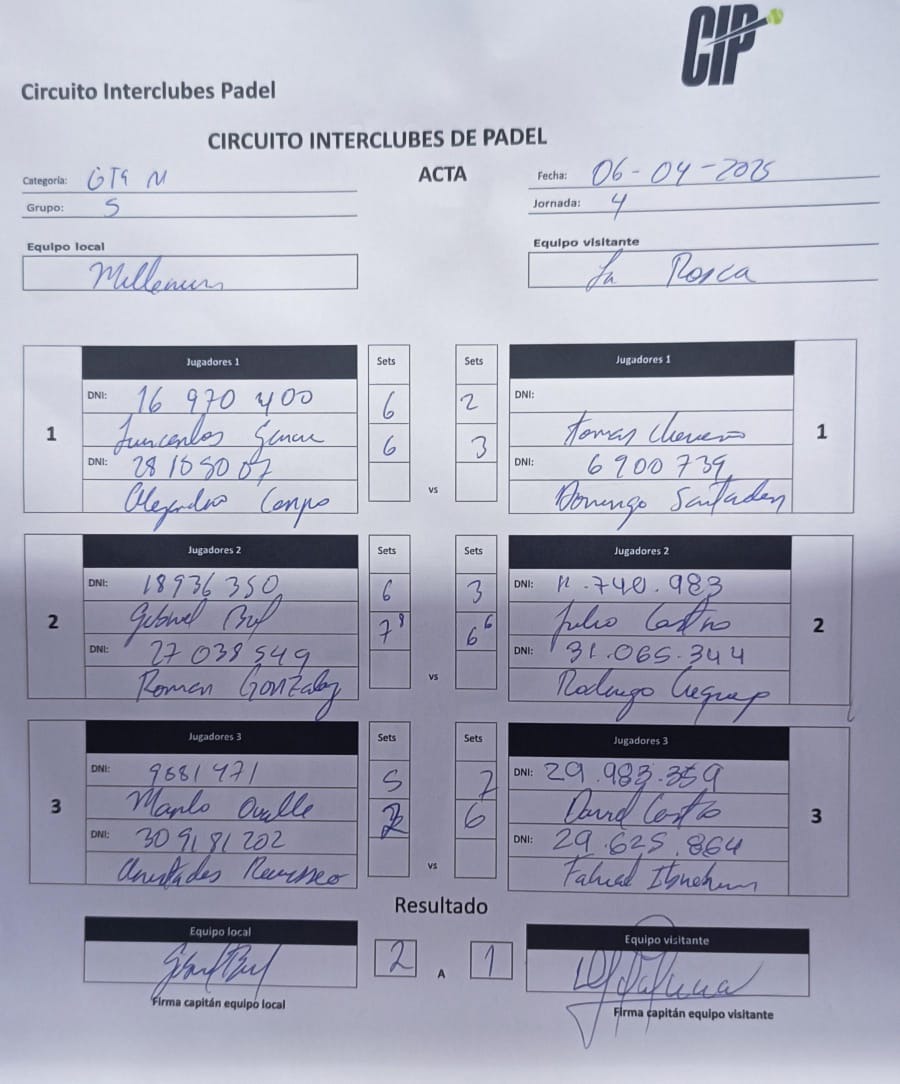 CIP
Circuito Interclubes Padel
CIRCUITO INTERCLUBES DE PADEL
ACTA
Categoría: M
Fecha: 06-04-2025
Grupo: 5
Jornada: 4
Equipo local
Equipo visitante
Millenium
La Rosca
Jugadores 1 Sets Sets Jugadores 1
DNI: 16 970 400 6 2 DNI:
6 3 Tomas
1 DNI: DNI: 6900 739 1
Alejandro Campo vs Domingo
Jugadores 2 Sets Sets Jugadores 2
DNI: 18936 350 6 3 DNI: 11.740.983
Gabriel 7⁸ 6⁶ Julio Castro
2 DNI: 27 038 549 DNI: 31.065.344 2
Roman Gonzalez vs Rodrigo
Jugadores 3 Sets Sets Jugadores 3
DNI: 9681471 5 7 DNI: 29.983.359
Ovalle 2 6 David Castro
3 DNI: 309181202 DNI: 29.625.864 3
vs
Resultado
Equipo local 2 A 1 Equipo visitante
Firma capitán equipo local
Firma capitán equipo visitante